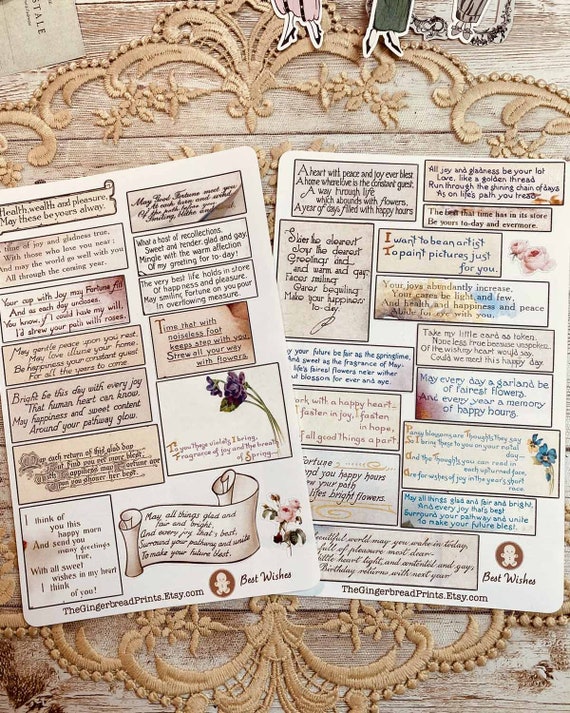 STALE
Health, wealth and pleasure,
May these be yours alway.
May Good Fortune meet you
time of joy and gladness true,
With those who love you near;
And may the world go well with you
All through the coming year.
What a host of recollections,
Sweet and tender, glad and gay,
Mingle with the warm affection
Of my greeting for to-day!
The very best life holds in store
Of happiness and pleasure,
May smiling Fortune on you pour
In overflowing measure.
Your cup with Joy may Fortune fill
And as each day uncloses,
You know, if I could have my will,
I'd strew your path with roses.
Time that with
noiseless foot
keeps step with you,
Strew all your way
with flowers.
May gentle peace upon you rest,
May love illume your home,
Be happiness your constant guest
For all the years to come.
Bright be this day with every joy
That human heart can know,
May happiness and sweet content
Around your pathway glow.
To you these violets I bring,
Fragrance of joy and the breath
of Spring
each return of this glad day
But find you yet more blest,
I think of
you this
happy morn
And send you
many greetings
true,
With all sweet
wishes in my heart
I think
of you!
May all things glad
and fair and bright,
And every joy that's best,
Surround your pathway and unite
To make your future blest.
Best Wishes
TheGingerbreadPrints.Etsy.com
A heart with peace and joy ever blest
A home where love is the constant guest,
A way through life
which abounds with flowers,
A year of days filled with happy hours
All joy and gladness be your lot
Love, like a golden thread
Run through the shining chain of days
As on life's path you tread
The best that time has in its store
Be yours to-day and evermore.
I want to be an artist
To paint pictures just
for you.
and warm and gay,
Fates smiling
Cares beguiling
Make your happiness
to-day.
Your joys abundantly increase,
Your cares be light and few,
And health, and happiness and peace
Abide for aye with you.
Take my little card as token,
None less true because unspoken,
Of the wishes my heart would say,
Could we meet this happy day.
your future be fair as the springtime,
And sweet as the fragrance of May;
life's fairest flowers ne'er wither
but blossom for ever and aye.
May every day a garland be
of fairest flowers.
And every year a memory
of happy hours.
ork, with a happy heart
fasten in joy, I fasten
in hope,
all good things a part.
Pansy blossoms are Thoughts they say
So I bring these to you on your natal
day
And the thoughts you can read in
each upturned face,
Are for wishes of joy in the year's short
race.
Fortune
nd you happy hours
new your path
lifes bright flowers.
May all things glad and fair and bright,
And every joy that's best
Surround your pathway and unite
To make your future blest.
eautiful world may you wake in today,
full of pleasure most dear
little heart light, and contented and gay,
Birthday returns with next year
Best Wishes
TheGingerbreadPrints.Etsy.com